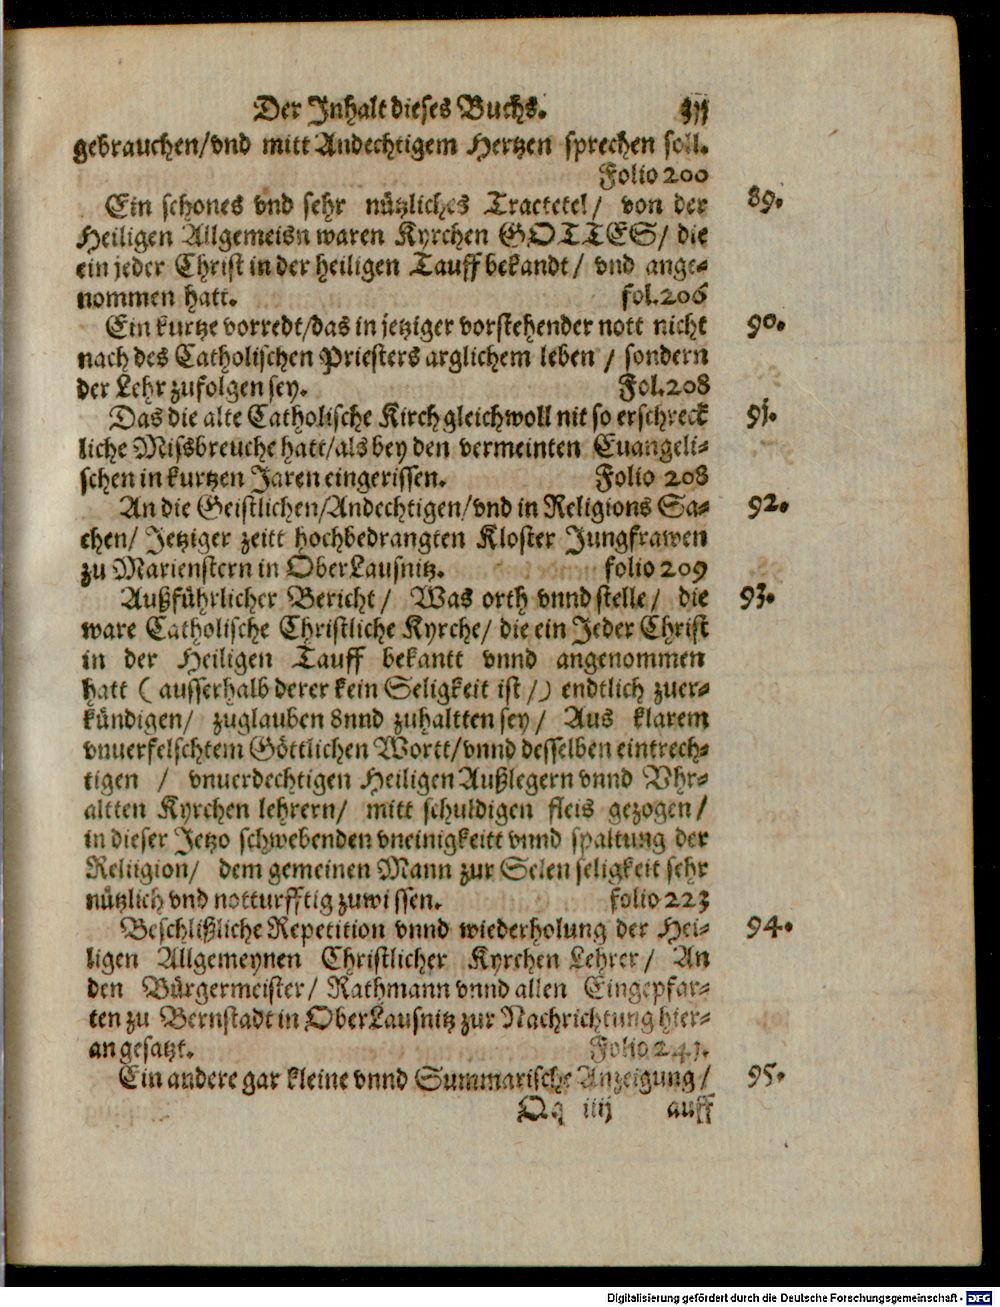 Der Inhalt dieses Buchs.
gebrauchen/vnd mitt Andechtigem Hertzen sprechen soll.
Folio 200
Ein schones vnd sehr nützliches Tractetel/ von der 89.
Heiligen Allgemeisn waren Kyrchen GOTTES/ die
ein jeder Christ in der heiligen Tauff bekandt/ vnd ange-
nommen hatt. fol.206
Ein kurtze vorredt/das in jetziger vorstehender nott nicht 90.
nach des Catholischen Priesters arglichem leben / sondern
der Lehr zufolgen sey. Fol.208
Das die alte Catholische Kirch gleichwoll nit so erschreck 91.
liche Missbreuche hatt/als bey den vermeinten Euangeli-
schen in kurtzen Jaren eingerissen. Folio 208
An die Geistlichen/Andechtigen/vnd in Religions Sa- 92.
chen/ Jetziger zeitt hochbedrangten Kloster Jungfrawen
zu Marienstern in OberLausnitz. folio 209
Außführlicher Bericht/ Was orth vnnd stelle/ die 93.
ware Catholische Christliche Kyrche/ die ein Jeder Christ
in der Heiligen Tauff bekantt vnnd angenommen
hatt ( ausserhalb derer kein Seligkeit ist /) endtlich zuer-
kündigen/ zuglauben 8nnd zuhaltten sey/ Aus klarem
vnuerfelschtem Göttlichen Wortt/vnnd desselben eintrech-
tigen / vnuerdechtigen Heiligen Außlegern vnnd Vhr-
altten Kyrchen lehrern/ mitt schuldigen fleis gezogen/
in dieser Jetzo schwebenden vneinigkeitt vnnd spaltung der
Reliigion/ dem gemeinen Mann zur Selen seligkeit sehr
nützlich vnd notturfftig zuwissen. folio 223
Beschlißliche Repetition vnnd wiederholung der Hei- 94.
ligen Allgemeynen Christlicher Kyrchen Lehrer/ An
den Bürgermeister/ Rathmann vnnd allen Eingepfar-
ten zu Bernstadt in OberLausnitz zur Nachrichtung hier-
an gesatzt. Folio 241.
Ein andere gar kleine vnnd Summarische Anzeigung/ 95.
Qq iiij auff
Digitalisierung gefördert durch die Deutsche Forschungsgemeinschaft - DFG